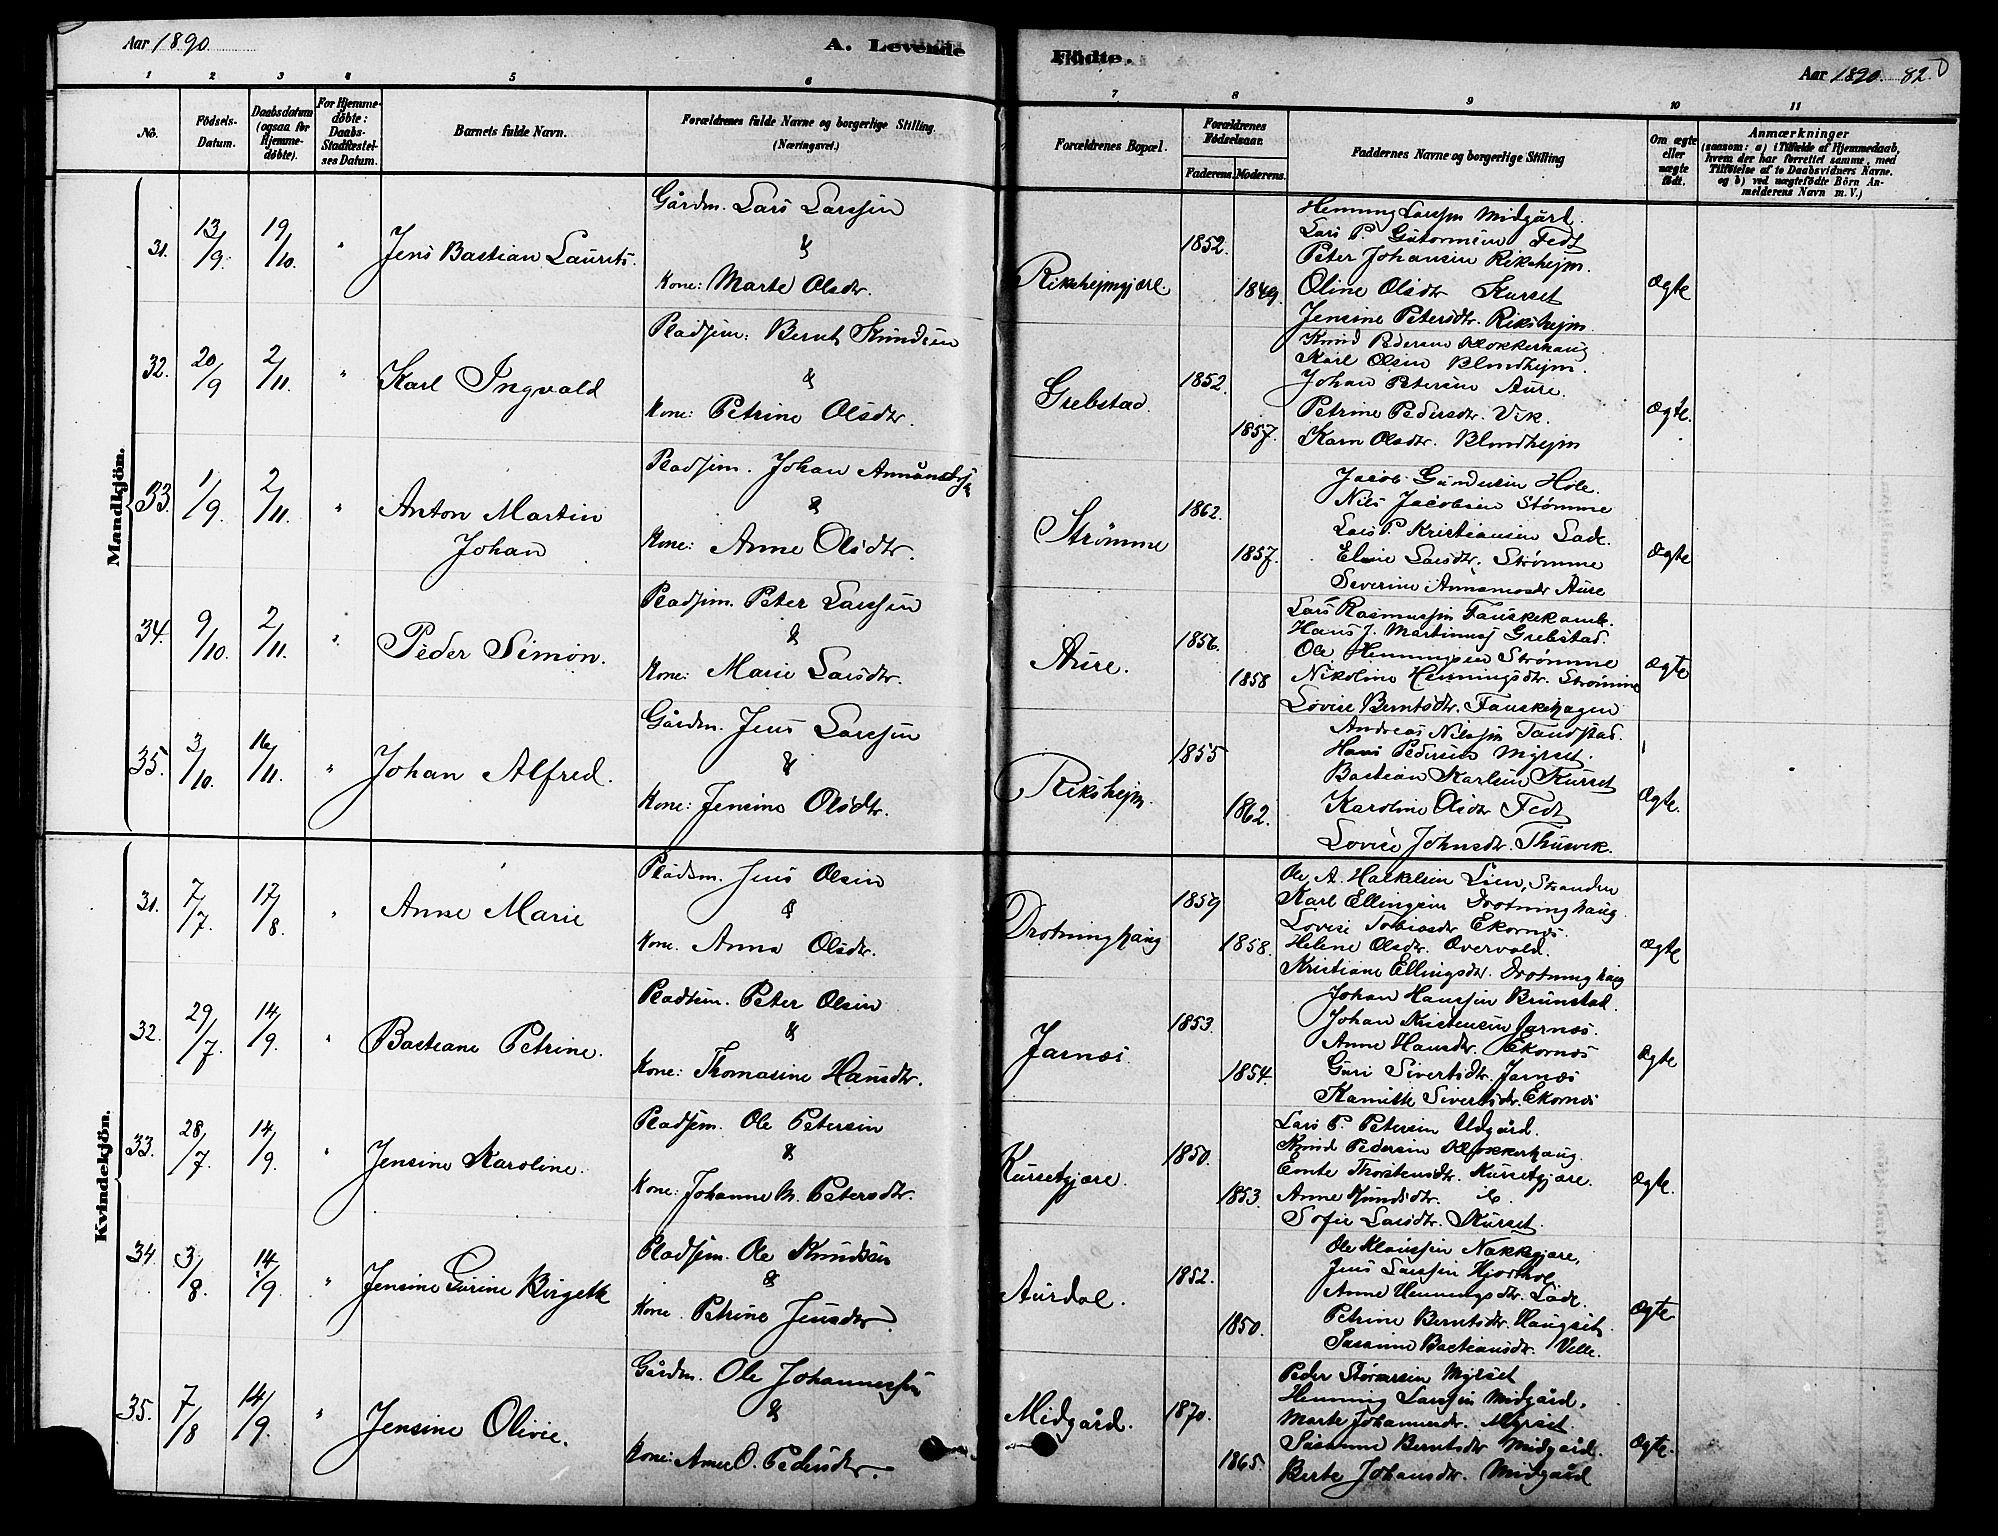 Aar 1890.
A. Levende
Födte.
Aar 1890. 82.
1 2 3 4 5 6 7 8 9 10 11
No.
Födsels-Datum.
Daabsdatum (ogsaa for Hjemmedöbte).
For Hjemmedöbte: Daabs-Stadfæstelses Datum.
Barnets fulde Navn.
Forældrenes fulde Navne og borgerlige Stilling. (Næringsvei.)
Forældrenes Bopæl.
Forældrenes Födselsaar.
Faderens. Moderens.
Faddernes Navne og borgerlige Stilling
Om ægte eller uægte födt.
Anmærkninger
(saasom: a) i Tilfælde af Hjemmedaab, hvem der har forrettet samme, med Tilföielse af to Daabsvidners Navne. og b) ved uægtefödte Börn Anmelderens Navn m. V.)
Mandkjön.
31. 13/9. 19/10. " Jens Bastian Laurits.
Gårdm. Lars Larssen
&
Kone: Marte Olsdtr.
Rikshejmgjære. 1852. 1849.
Henning Larssen Midgård.
Lars P. Gutormsen Fedt
Peter Johansen Rikshejm.
Oline Olsdtr Kurset
Jensine Petersdtr. Rikshejm.
Ægte
32. 20/9 2/11. " Karl Ingvald
Pladsm: Bernt Knudsen
&
Kone: Petrine Olsdtr.
Grebstad. 1852. 1857.
Knud Pedersen Klokkerhaug
Karl Olsen Blindhejm.
Johan Petersen Aure.
Petrine Pedersdtr. Vik.
Karn Olsdtr. Blindhejm
Ægte.
33. 1/9. 2/11. " Anton Martin
Johan
Pladsm. Johan
&
Kone: Anne Olsdtr.
Strømme 1862. 1857.
Jacob Gundersen Hole.
Nils Jacobsen Strømme
Lars P. Kristiansen Lade.
Larsdtr. Strømme
Severine Aure
Ægte
34. 9/10. 2/11. " Peder Simon.
Pladsm. Peter Larssen
&
Kone: Marie Larsdtr.
Aure. 1856. 1858
Lars Rasmussen Fauskekamb.
Hans J. Martinuss Grebstad.
Ole Henningsen Strømme
Nikoline Henningsdtr. Strømme
Lovise Berntsdtr. Fauskehagen
Ægte
35. 3/10. 16/11. " Johan Alfred.
Gårdm. Jens Larssen
&
Kone: Jensine Olsdtr.
Rikshejm. 1855 1862.
Andreas Nilssen Tandstad.
Hans Pedersen Myrset.
Bastian Karlsen Kurset
Karoline Olsdtr Fedt
Lovise Johnsdtr. Thusvik.
Ægte.
Kvindekjön.
31. 7/7. 17/8. " Anne Marie
Pladsm. Jens Olsen
&
Kone. Anna Olsdtr.
Drotninghaug 1859 1858.
Ole A. Lien, Stranden
Karl Ellingsen Drotninghaug.
Lovise Tobiasdtr Ekornæs.
Helene Olsdtr. Overvold.
Kristiane Ellingsdtr. Drotninghaug
Ægte
32. 29/7. 14/9. " Bastiane Petrine.
Pladsm. Peter Olsen
&
Kone: Thomasine Hansdtr.
Jarnæs. 1853. 1854.
Johan Hanssen Brunstad.
Johan Kristensen Jarnæs.
Anne Hansdtr. Ekornæs
Guri Sivertsdtr. Jarnæs
Kamille Sivertsdtr. Ekornæs
Ægte
33. 28/7. 14/9. " Jensine Karoline.
Pladsm. Ole Petersen
&
Kone: Johanne M. Petersdtr.
Kursetgjære. 1850. 1853.
Lars P. Petersen Udgård.
Knud Pedersen Klokkerhaug.
Emte Thorstensdtr. Kursetgjære.
Anne Knudsdtr.
Sofie Larsdtr. Kurset.
Ægte.
34. 3/8. 14/9. " Jensine Gurine Birgette
Pladsm. Ole Knudsen
&
Kone. Petrine Jensdtr.
Aurdal. 1852. 1850.
Ole Klaussen Nakkegjære,
Jens Larssen Hjorthol
Anne Henningsdtr. Lade.
Petrine Berntsdtr. Haugset.
Susanne Bastiansdtr. Velle.
Ægte
35. 7/8 14/9. " Jensine Olivie.
Gårdm. Ole Johannessen
&
Kone: Anne O. Pedersdtr.
Midgård. 1870. 1865.
Peder Myrset
Henning Larssen Midgård.
Marte Johannesdtr. Myrset.
Susanne Berntsdtr Midgård.
Berte Johansdtr. Midgård
Ægte.